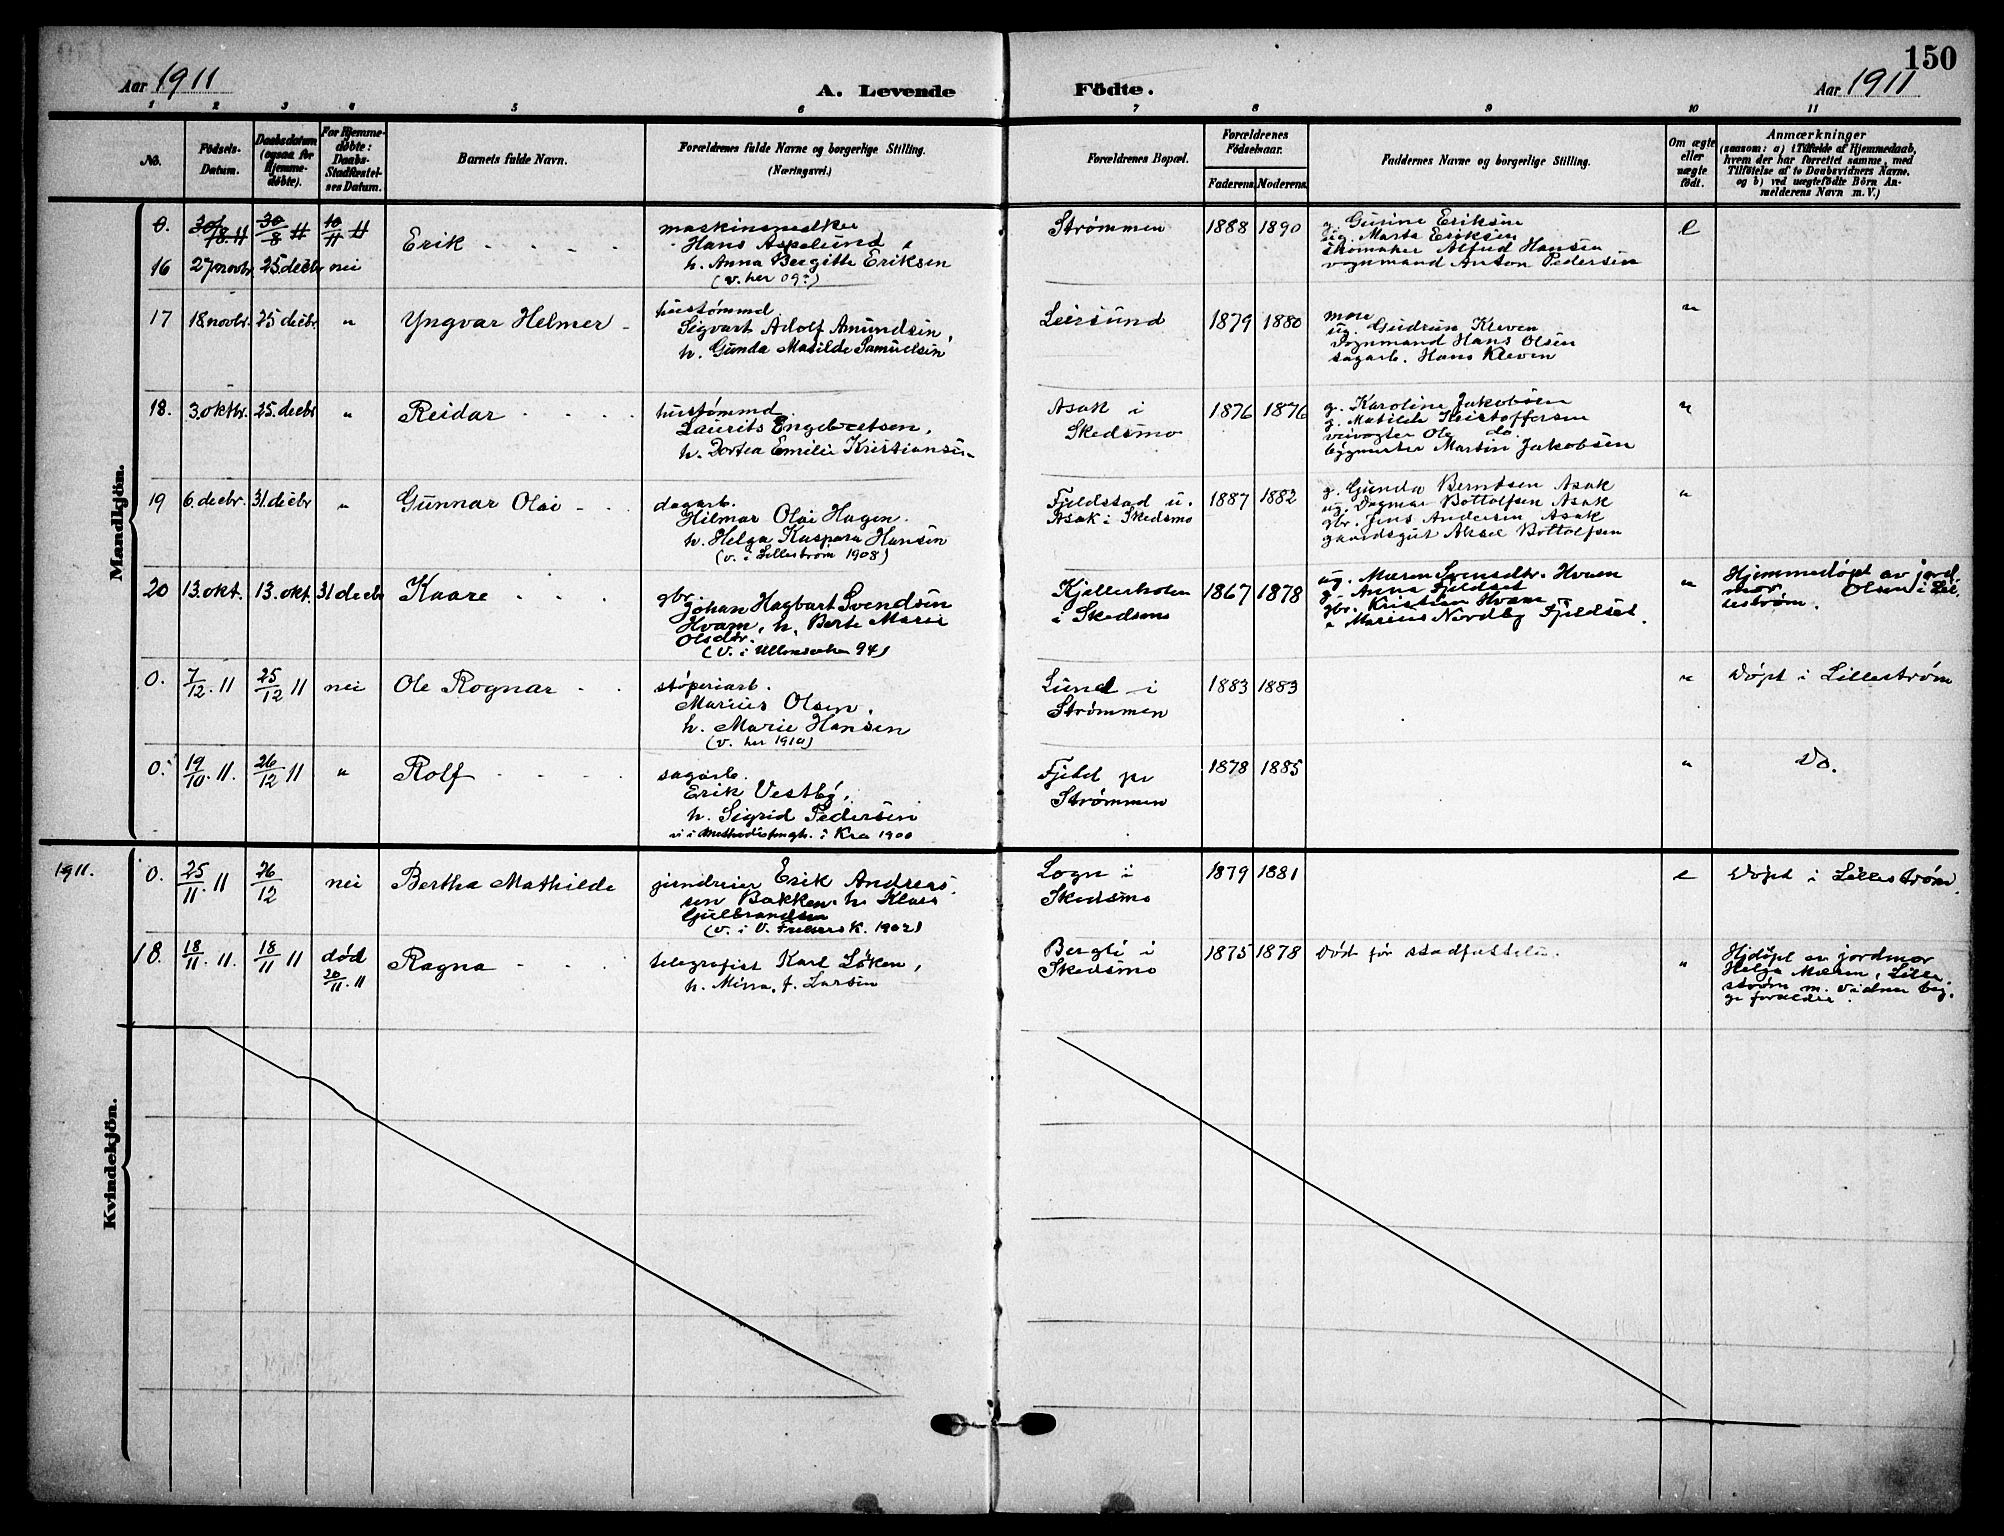 150
Aar 1911 A. Levende Fødte. Aar 1911
1 2 3 4 5 6 7 8 9 10 11
No. Fødsels-Datum. Daabsdatum (ogsaa for Hjemmedøbte). For Hjemmedøbte: Daabs-Stadfæstelses Datum. Barnets fulde Navn. Forældrenes fulde Navne og borgerlige Stilling. (Næringsvei.) Forældrenes Bopæl. Forældrenes Fødselsaar. Faderens. Moderens. Faddernes Navne og borgerlige Stilling. Om ægte eller uægte født. Anmærkninger (saasom: a) i Tilfælde af Hjemmedaab, hvem der har forrettet samme, med Tilføielse af to Daabsvidners Navne. og b) ved uægtefødte Börn Anmelderens Navn m. V.)
Mandkjön.
0. 30/8 11 10/11 11
16 27 novbr. 25 decbr nei Erik
maskinsmed
Hans Aspelund
h. Anna Bergitte Eriksen
(v. her 09)
Strømmen 1888 1890
g. Gusine Eriksen
ug. Marta Eriksen
skomaker Alfred Hansen
vognmand Anton Pedersen
e
17 18 novbr. 25 decbr " Yngvar Helmer
hustømmd
Sigvart Adolf Amundsen,
h. Gunda Matilde Samuelsen
Leirsund 1879 1880
mor
ug. Gudrun Kleven
Vognmand Hans Olsen
sagarb. Hans Kleven
"
18. 3. oktbr. 25. decbr " Reidar
hustømmd.
Laurits Engebretsen,
h. Dortea Emilie Kristiansen
Asak i
Skedsmo
1876 1876
g. Karoline Jakobsen
g. Matilde Kristoffersen
veivogter Ole do.
bygmester Martin Jakobsen
"
19 6. decbr. 31 decbr " Gunnar Olai
dagarb.
Hilmar Olai Hagen.
h. Helga Kaspara Hansen
(v. i Lillestrøm 1908)
Fjeldstad u.
Asak i Skedsmo
1887 1882
g. Gunda Berntsen Asak
ug. Dagmar Bottolfsen Asak
gbr. Jens Andersen Asak
gaardsgut Aksel Bottolfsen
"
20 13. okt. 13. okt. 31 decbr Kaare
gbr.
Johan Hagbart Svendsen
Hvam, h. Berte Marie
Olsdtr.
(v. i Ullensaker 94)
Kjellerholen
i Skedsmo
1867 1878
ug. Maren Svensdtr. Hvam
g. Anna Fjeldset
gbr. Kristian Hvam
" Marius Nordby Fjeldset.
"
Hjemmedøpt av jord-
mor Olsen i Lil-
lestrøm.
0. 7/12. 11 25/12 11 nei Ole Rognar
støperiarb.
Marius Olsen,
h. Marie Hansen
(v. her 1910)
Lund i
Strømmen
1883 1883
"
Døpt i Lillestrøm
0. 19/10. 11. 26/12 11 " Rolf
sagarb.
Erik Vestby,
h. Sigrid Pedersen
v. i Methodistmgh. i Kra 1900
Fjeld pr
Strømmen
1878 1885
"
Do.
Kvindekjön.
1911. 0. 25/11. 11 26/12 nei Bertha Mathilde
jerndreier Erik Anders-
sen Bakken. h. Klara
Gulbrandsen
(v. i V. Fredrik. 1902)
Sogn i
Skedsmo
1879 1881
e
Døpt i Lillestrøm.
18. 18/11. 11. 18/11 11 død 20/11. 11 Ragna
telegrafist Karl Løken,
h. Minna, f. Larsen
Bergli i
Skedsmo
1875 1878
Død før stadfestelse.
"
Hjdøpt av jordmor
Helga Maren, Lille
strøm m. vidner beg-
ge foreldre.